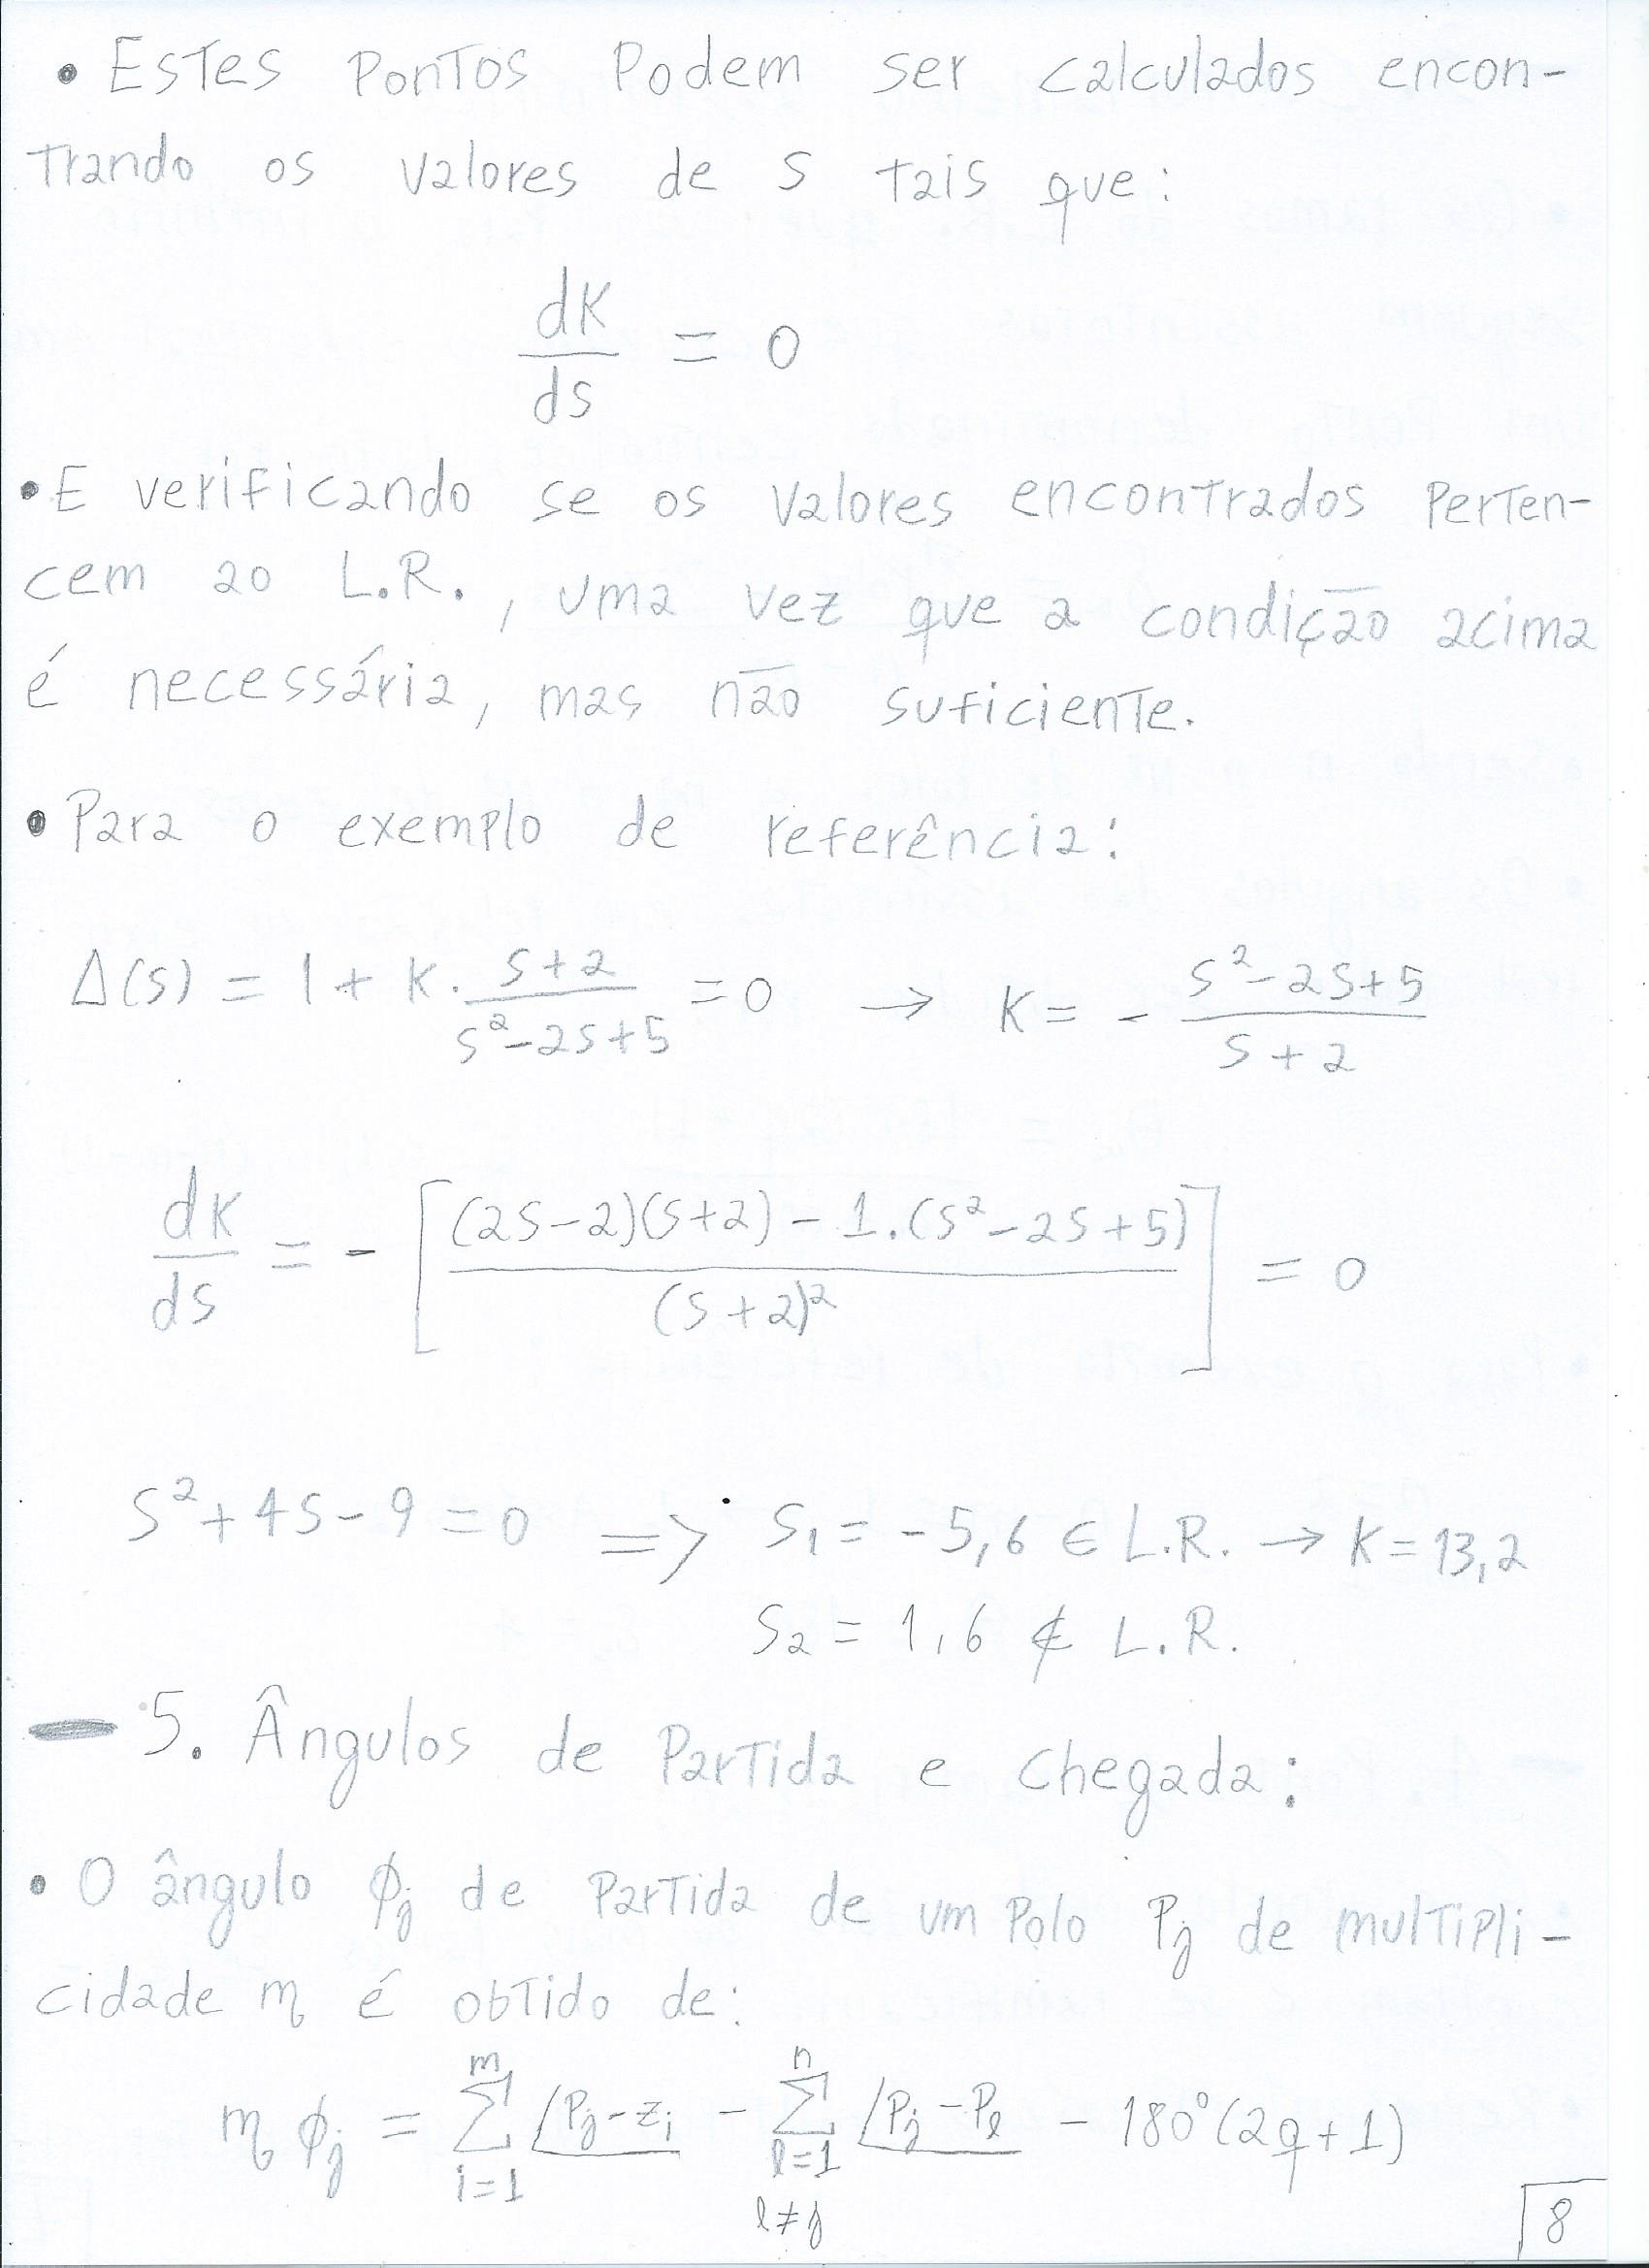 • Estes pontos podem ser calculados encon-
trando os valores de s tais que:
dK/ds = 0
• E verificando se os valores encontrados perten-
cem ao L.R., uma vez que a condição acima
é necessária, mas não suficiente.
• Para o exemplo de referência:
Δ(s) = 1 + K . (s+2)/(s²-2s+5) = 0 → K = - (s²-2s+5)/(s+2)
dK/ds = - [((2s-2)(s+2) - 1.(s²-2s+5))/(s+2)²] = 0
s²+4s-9=0 => s₁ = -5,6 ∈ L.R. → K = 13,2
s₂ = 1,6 ∉ L.R.
— 5. Ângulos de partida e chegada:
• O ângulo ϕj de partida de um polo Pj de multipli-
cidade m é obtido de:
m ϕj = Σ(i=1, m) ∠Pj-zi - Σ(l=1, l≠j, n) ∠Pj-Pl - 180°(2q+1)
8